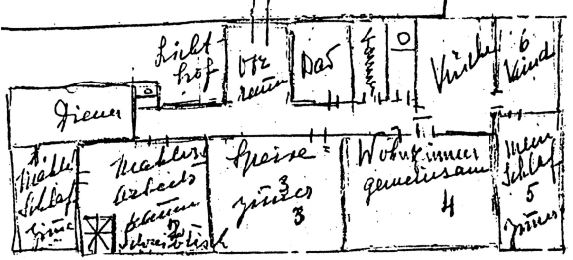 Licht-
hof
Vor
raum
Bad
Küche
6
Kind
Diener
Mahlers
Schlaf
zimer
Mahlers
Arbeits
raum
2
Schreibtisch
Speise
zimer
3
3
Wohnzimmer
gemeinsam
4
Mein
Schlaf
5
zimer